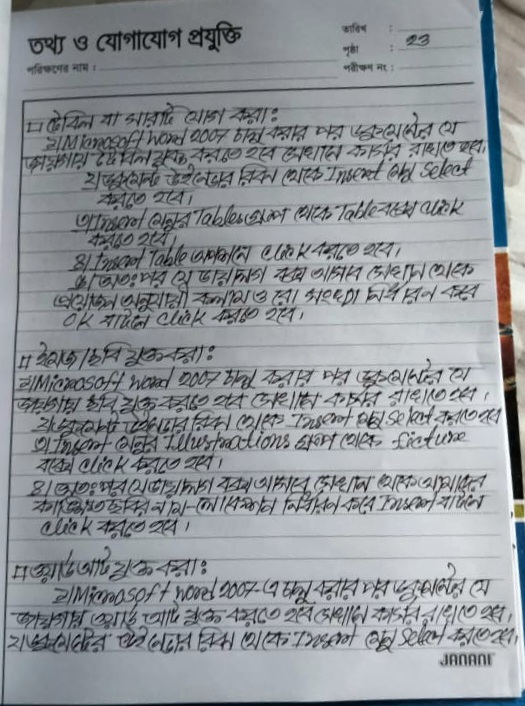 তথ্য ও যোগাযোগ প্রযুক্তি
তারিখ :
পৃষ্ঠা : 23
পরিক্ষণের নাম :
পরীক্ষণ নং :
□ টেবিল বা সারণি যোগ করা:
১। Microsoft Word 2007 চালু করার পর ডকুমেন্টের যে
জায়গায় টেবিল যুক্ত করতে হবে সেখানে কার্সর রাখতে হবে।
২। ডকুমেন্ট উইন্ডোর রিবন থেকে Insert মেনু Select
করতে হবে।
৩। Insert মেনুর Tables গ্রুপ থেকে Table বক্সে click
করতে হবে।
৪। Insert Table অপশনে click করতে হবে।
৫। অতঃপর যে ডায়ালগ বক্স আসবে সেখান থেকে
প্রয়োজন অনুযায়ী কলাম ও রো সংখ্যা নির্ধারন করে
OK বাটনে click করতে হবে।
□ ইমেজ/ছবি যুক্ত করা:
১। Microsoft Word 2007 চালু করার পর ডকুমেন্টের যে
জায়গায় ছবি যুক্ত করতে হবে সেখানে কার্সর রাখতে হবে।
২। ডকুমেন্ট উইন্ডোর রিবন থেকে Insert মেনু Select করতে হবে
৩। Insert মেনুর Illustrations গ্রুপ থেকে picture
বক্সে click করতে হবে।
৪। অতঃপর যে ডায়ালগ বক্স আসবে সেখান থেকে আমাদের
কাঙ্ক্ষিত ছবির নাম-লোকেশন নির্ধারন করে Insert বাটনে
click করতে হবে।
□ ওয়ার্ড আর্ট যুক্ত করা:
১। Microsoft Word 2007-এ চালু করার পর ডকুমেন্টের যে
জায়গায় ওয়ার্ড আর্ট যুক্ত করতে হবে সেখানে কার্সর রাখতে হবে।
২। ডকুমেন্টের উইন্ডোর রিবন থেকে Insert মেনু Select করতে হবে।
JANANI